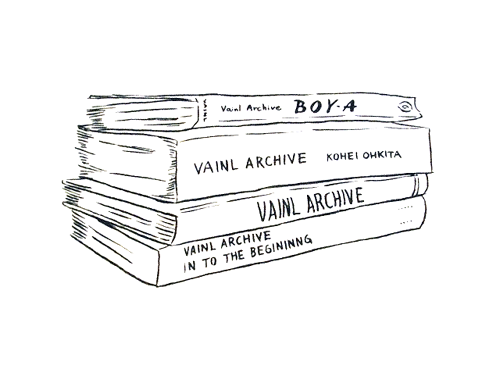 Vainl Archive BOY-A
VAINL ARCHIVE KOHEI OHKITA
VAINL ARCHIVE
VAINL ARCHIVE
IN TO THE BEGININNG